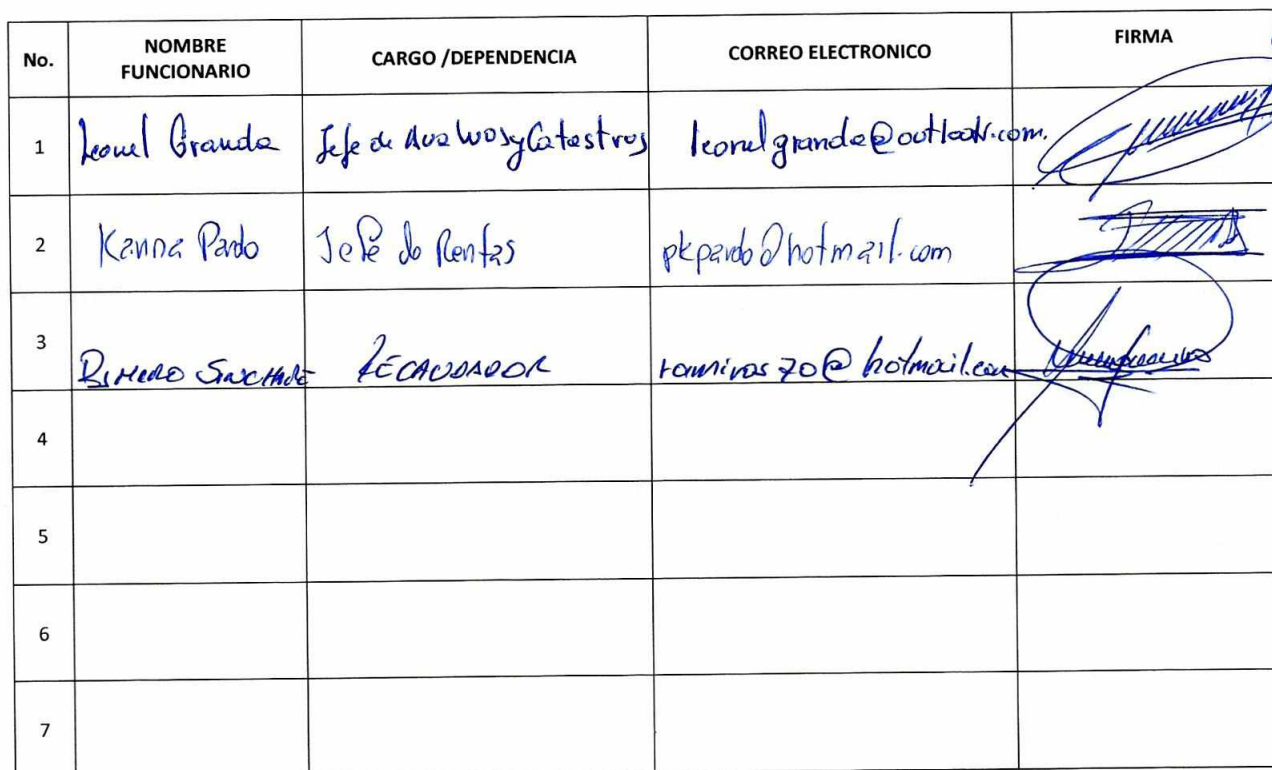 No. NOMBRE FUNCIONARIO CARGO /DEPENDENCIA CORREO ELECTRONICO FIRMA
1 Leonel Granda Jefe de Avaluos y Catastros leonelgranda@outlook.com.
2 Karina Pardo Jefe de Rentas pkpardo@hotmail.com
3 RECAUDADOR hotmail.com
4
5
6
7